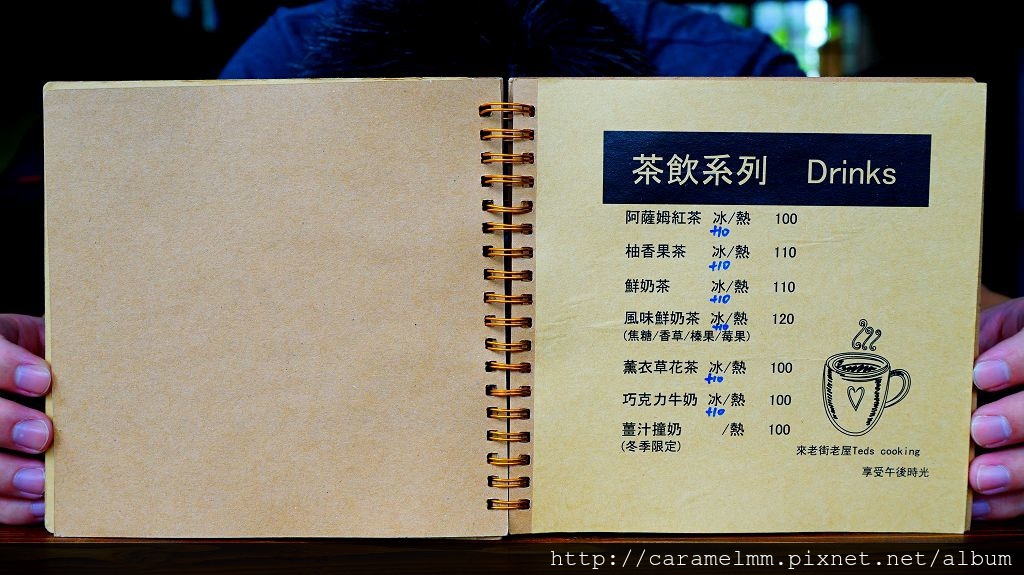 茶飲系列 Drinks
阿薩姆紅茶 冰/熱 100
+10
柚香果茶 冰/熱 110
+10
鮮奶茶 冰/熱 110
+10
風味鮮奶茶 冰/熱 120
+10
(焦糖/香草/榛果/莓果)
薰衣草花茶 冰/熱 100
+10
巧克力牛奶 冰/熱 100
+10
薑汁撞奶 /熱 100
(冬季限定)
來老街老屋Teds cooking
享受午後時光
http://caramelmm.pixnet.net/album